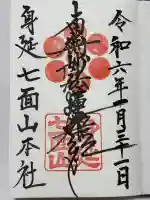 令和六年一月三十一日
南無妙法蓮華経
身延七面山本社